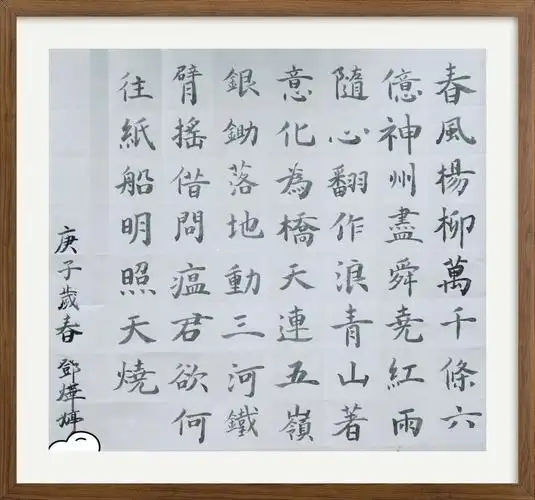 春風楊柳萬千條六
億神州盡舜堯紅雨
隨心翻作浪青山著
意化為橋天連五嶺
銀鋤落地動三河鐵
臂搖借問瘟君欲何
往紙船明照天燒
庚子歲春 鄧燁婷